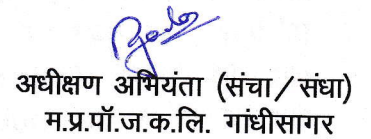 अधीक्षण अभियंता (संचा/संधा)
म.प्र.पॉ.ज.क.लि. गांधीसागर